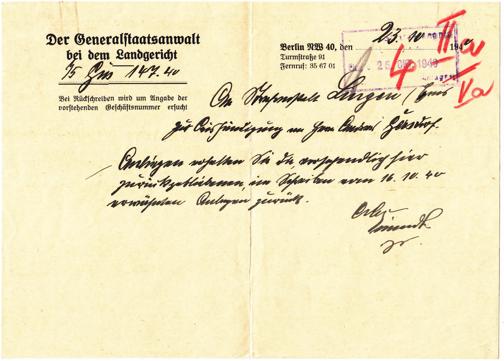 Der Generalstaatsanwalt
bei dem Landgericht
147.40
Bei Rückschreiben wird um Angabe der
vorstehenden Geschäftsnummer ersucht
Berlin NW 40, den 23.10 1940
Turmstraße 91
Fernruf: 35 67 01
25. 1940
4
II a
V a
An Strafanstalt Lingen / Ems
zur Aushändigung an Herrn
Anliegend erhalten Sie die versehentlich hier
zurückgebliebenen, im Schreiben vom 16.10.40
erwähnten Anlagen zurück.